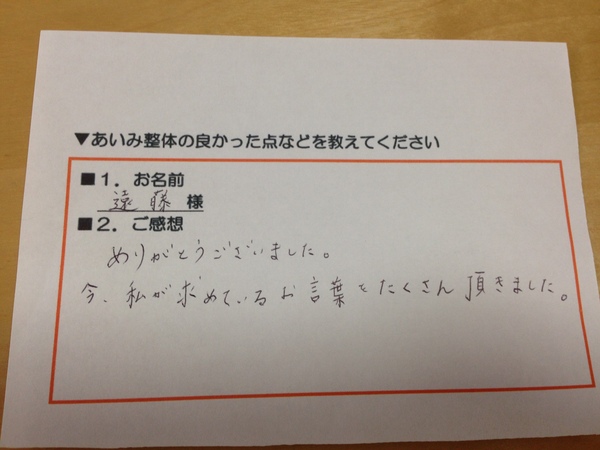 ▼あいみ整体の良かった点などを教えてください
■1．お名前
遠藤 様
■2．ご感想
ありがとうございました。
今、私が求めているお言葉をたくさん頂きました。